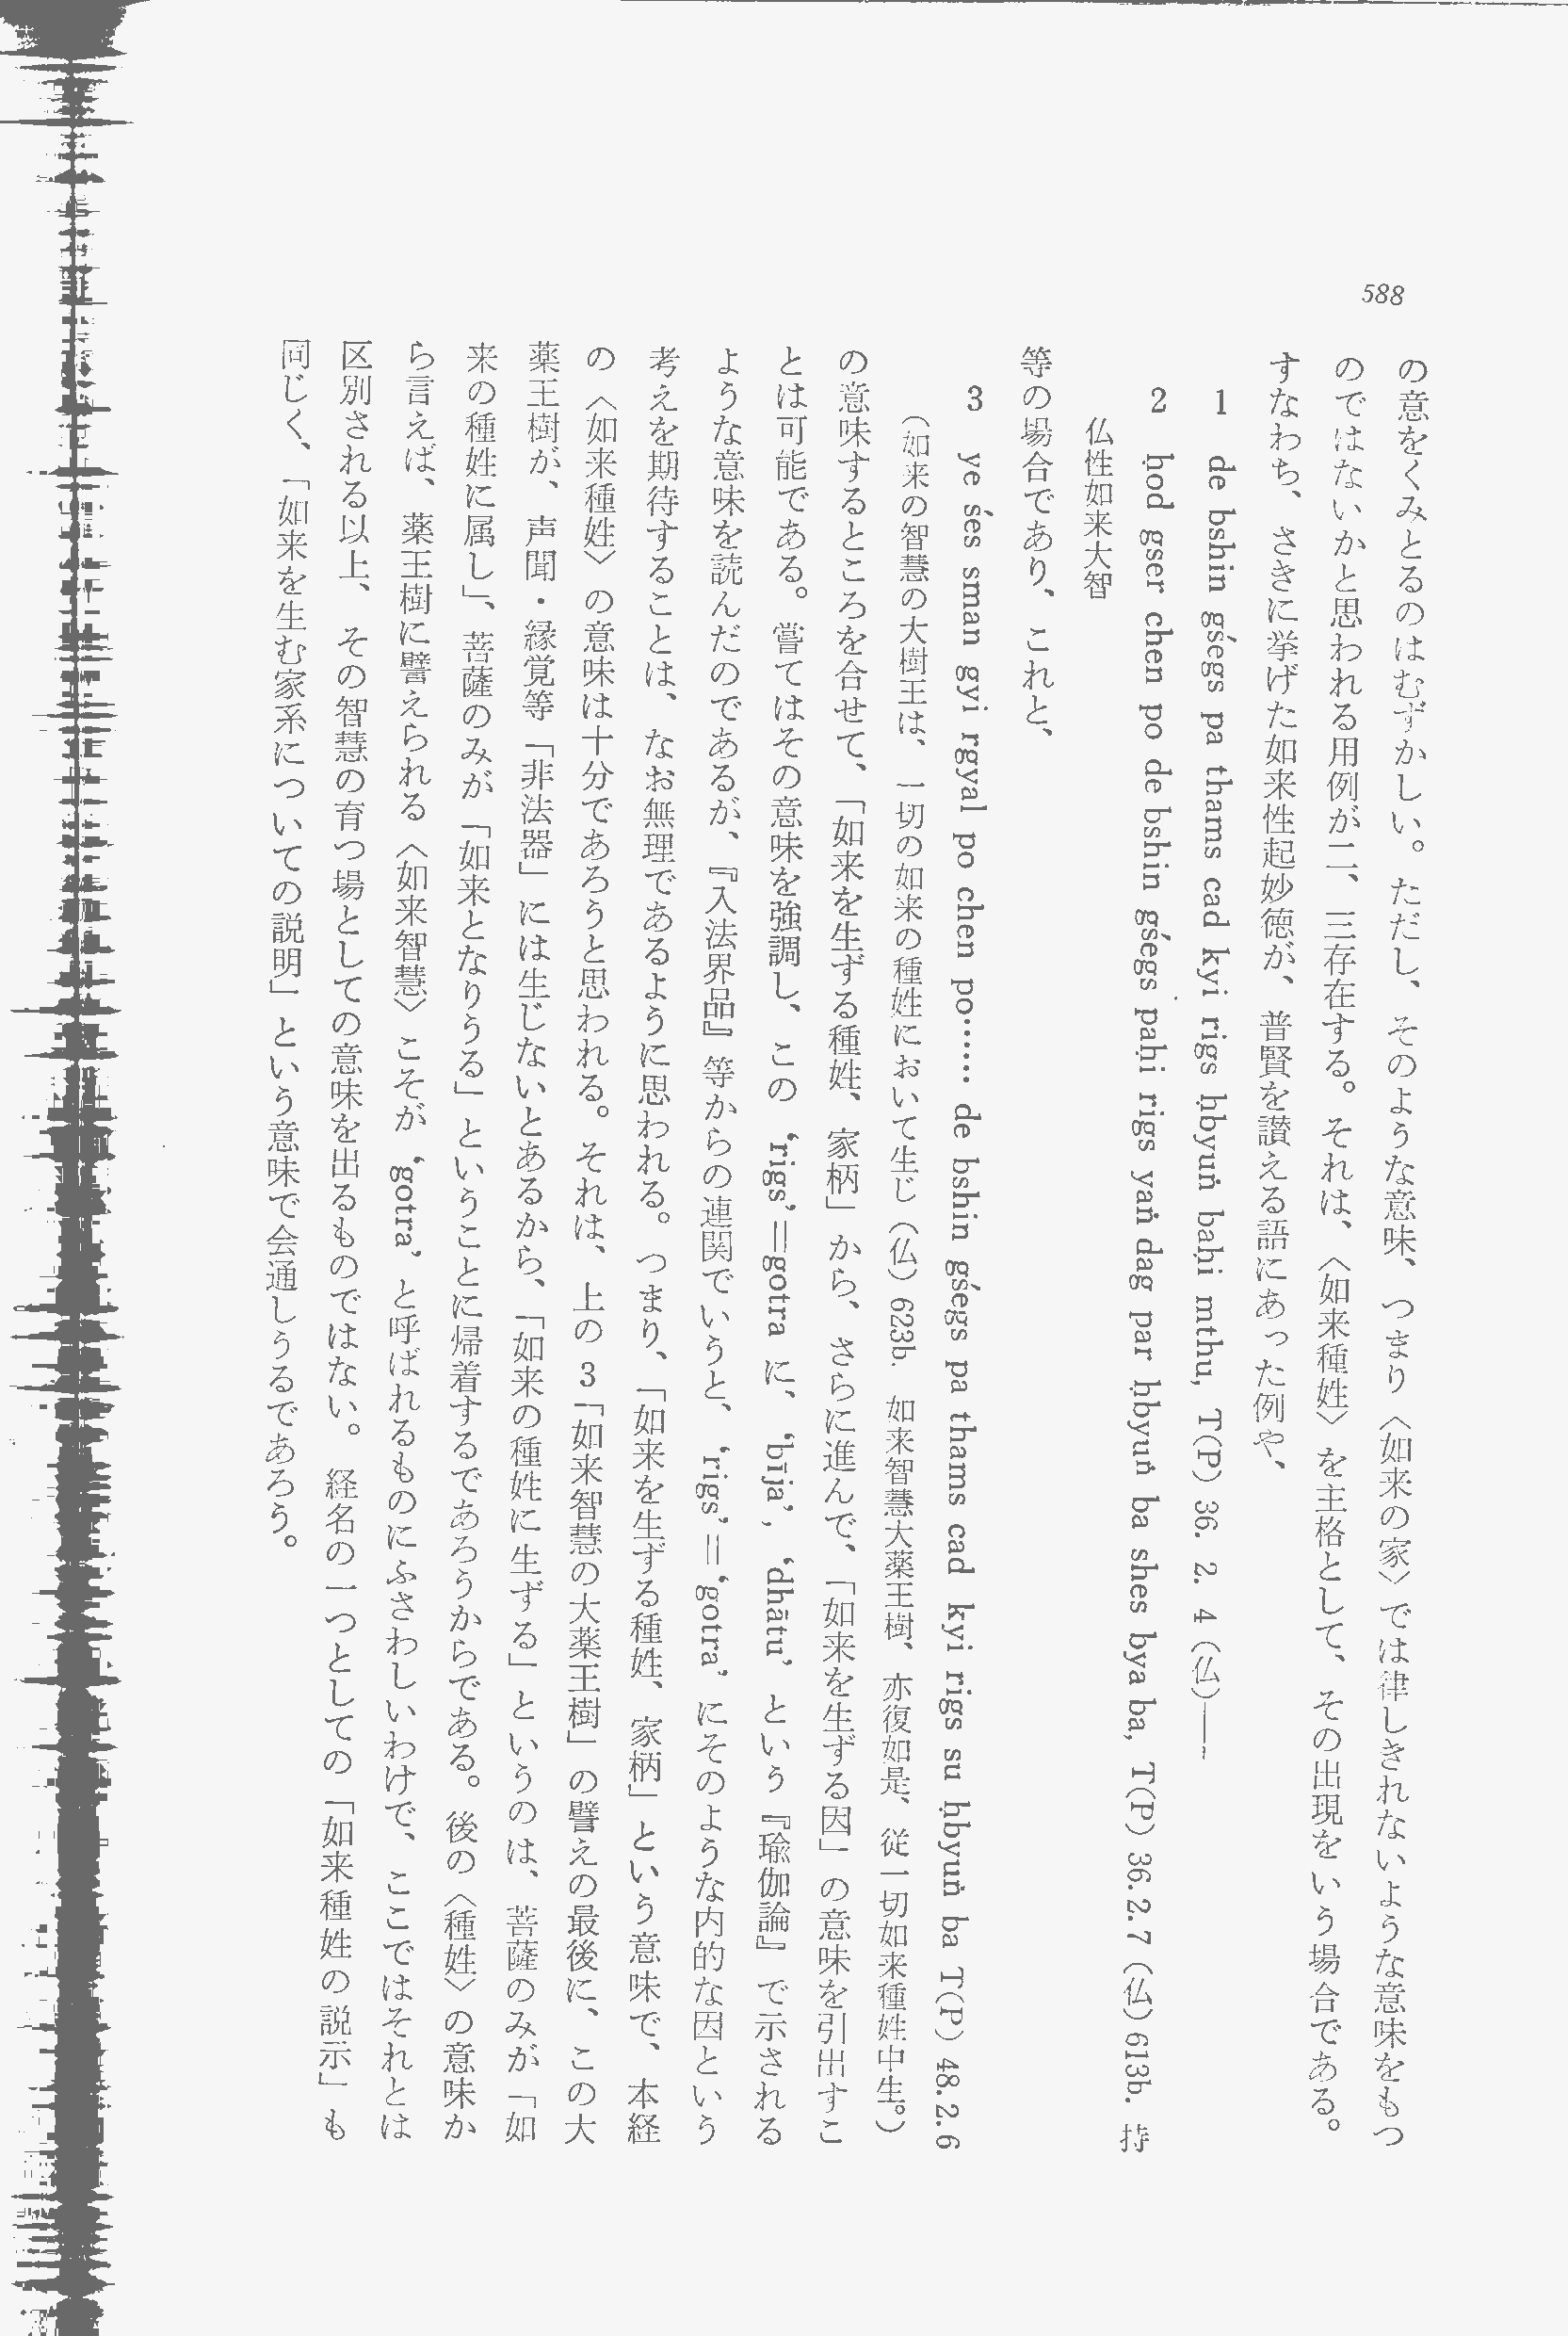 588
の意をくみとるのはむずかしい。ただし、そのような意味、つまり〈如来の家〉では律しきれないような意味をもつ
のではないかと思われる用例が二、三存在する。それは、〈如来種姓〉を主格として、その出現をいう場合である。
すなわち、さきに挙げた如来性起妙徳が、普賢を讃える語にあった例や、
1 de bshin gśegs pa thams cad kyi rigs ḥbyuṅ baḥi mthu, T(P) 36. 2. 4 (仏)——
2 ḥod gser chen po de bshin gśegs paḥi rigs yaṅ dag par ḥbyuṅ ba shes bya ba, T(P) 36.2.7 (仏) 613b. 持
仏性如来大智
等の場合であり、これと、
3 ye śes sman gyi rgyal po chen po…… de bshin gśegs pa thams cad kyi rigs su ḥbyuṅ ba T(P) 48.2.6
(如来の智慧の大樹王は、一切の如来の種姓において生じ(仏) 623b. 如来智慧大薬王樹、亦復如是、従一切如来種姓中生。)
の意味するところを合せて、「如来を生ずる種姓、家柄」から、さらに進んで、「如来を生ずる因」の意味を引出すこ
とは可能である。嘗てはその意味を強調し、この ‘rigs’=gotra に、‘bīja’, ‘dhātu’ という『瑜伽論』で示される
ような意味を読んだのであるが、『入法界品』等からの連関でいうと、‘rigs’=‘gotra’ にそのような内的な因という
考えを期待することは、なお無理であるように思われる。つまり、「如来を生ずる種姓、家柄」という意味で、本経
の〈如来種姓〉の意味は十分であろうと思われる。それは、上の3「如来智慧の大薬王樹」の譬えの最後に、この大
薬王樹が、声聞・縁覚等「非法器」には生じないとあるから、「如来の種姓に生ずる」というのは、菩薩のみが「如
来の種姓に属し」、菩薩のみが「如来となりうる」ということに帰着するであろうからである。後の〈種姓〉の意味か
ら言えば、薬王樹に譬えられる〈如来智慧〉こそが ‘gotra’ と呼ばれるものにふさわしいわけで、ここではそれとは
区別される以上、その智慧の育つ場としての意味を出るものではない。経名の一つとしての「如来種姓の説示」も
同じく、「如来を生む家系についての説明」という意味で会通しうるであろう。